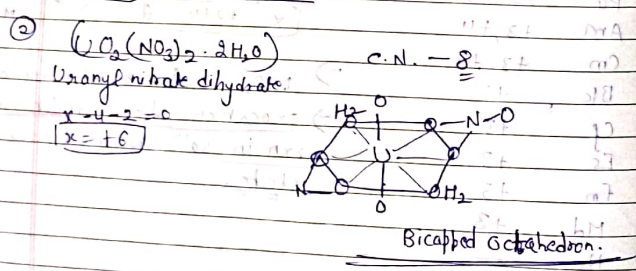 ② UO2(NO3)2·2H2O
C.N. — 8
Uranyl nitrate dihydrate.
x-4-2=0
x=+6
H2 O
O —N—O
U
N
O OH2
O
Bicapped octahedron.